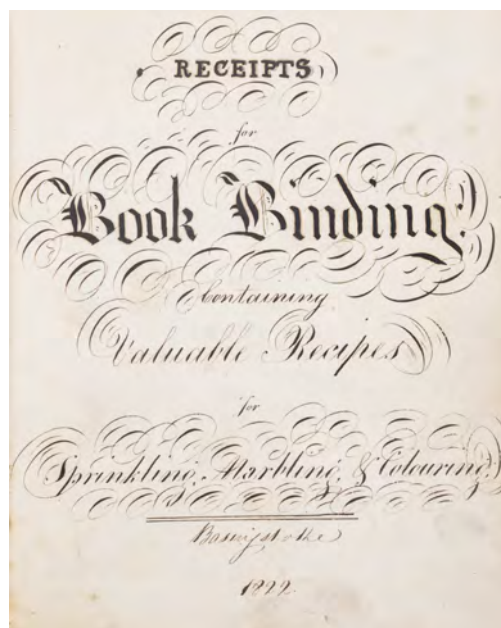 RECEIPTS
for
Book Binding.
Containing
Valuable Recipes
for
Sprinkling, Marbling, & Colouring,
Basingstoke
1822.